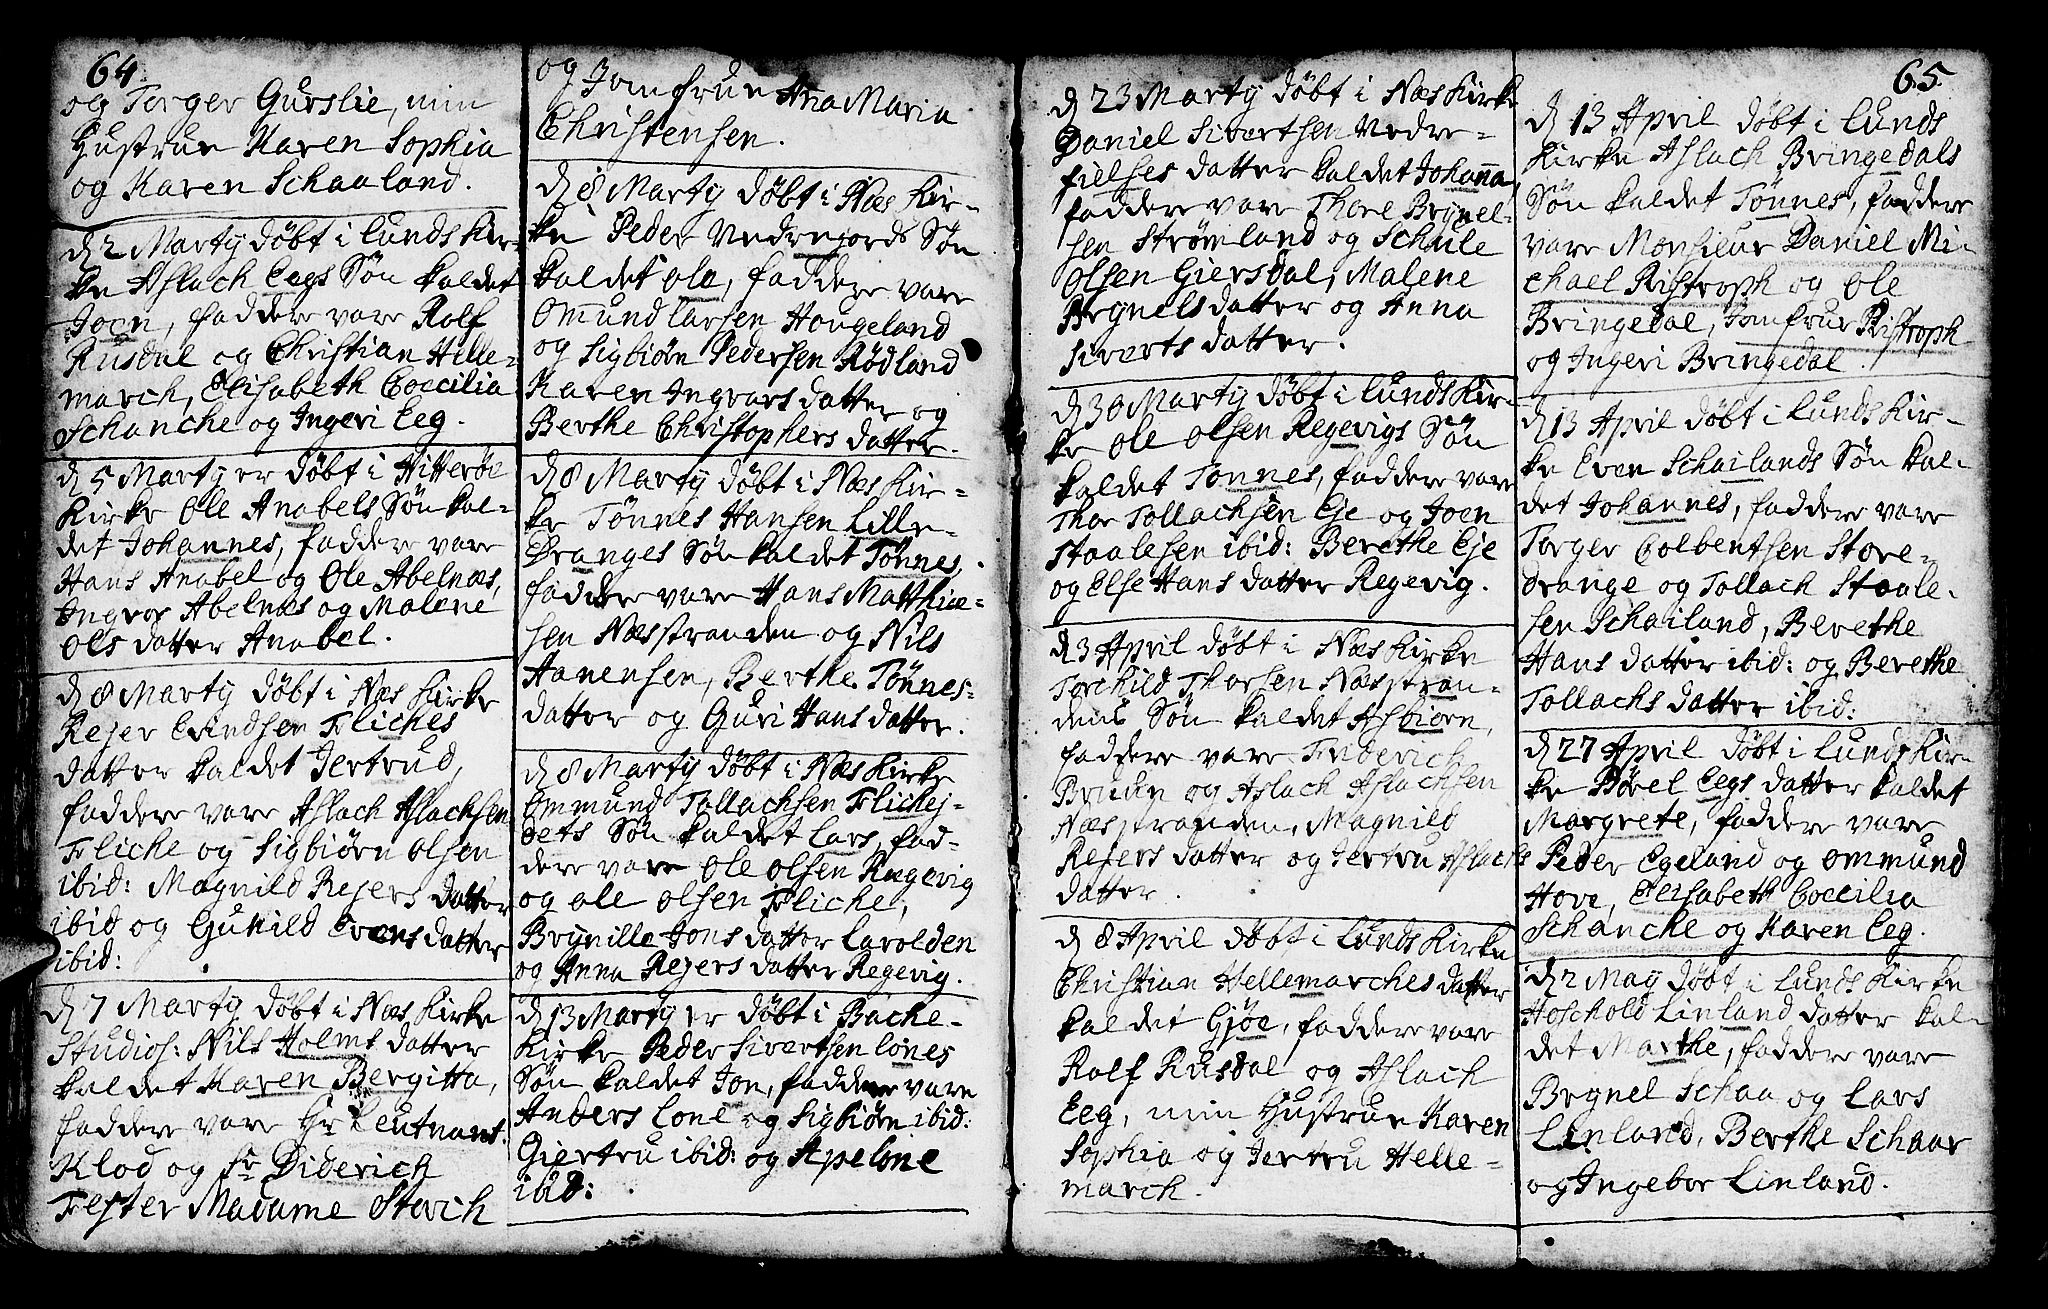 64
og Torger Gurslie, min
Hustrue Karen Sophia
og Karen Schaaland.
d 2 Martij døbt i Lunds Kir-
ke Aslach Eegs Søn kaldet
Joen, faddere vare Rolf
Rusdal og Christian Helle-
march, Elisabeth Coecilia
Schanche og Ingeri Eeg.
d 5 Martij er døbt i Hitterøe
Kirke Ole Anabels Søn kal-
det Johannes, faddere vare
Hans Anabel og Ole Abelnæs,
Ingvor Abelnæs og Malene
Ols datter Anabel.
d 8 Martij døbt i Næs Kirke
Rejer Evindsen Fliches
datter kaldet Jertrud,
faddere vare Aslach Aslachsen
Fliche og Sigbiørn Olsen
ibid: Magnild Rejers datter
ibid og Gunild Evens datter
ibid:
d 7 Martij døbt i Næs Kirke
Studios: Nils Holms datter
kaldet Karen Bergitta,
faddere vare Hr Leutnant
Klod og Sr Diderich
Fester Madame Storch
og Jomfrue Ana Maria
Christensen.
d 8 Martij døbt i Næs Kir-
ke Peder Vedrefiords Søn
kaldet Ole, faddere vare
Omund Larsen Hougeland
og Sigbiørn Pedersen Rødland
Karen Ingvars datter og
Berthe Christophers datter.
d 8 Martij døbt i Næs Kir-
ke Tønnes Hansen Lille-
Dranges Søn kaldet Tønnes,
faddere vare Hans Matthie-
sen Næsstranden og Nils
Aanensen, Berthe Tønnes-
datter og Guri Hans datter.
d 8 Martij døbt i Næs Kirke
Ommund Tollachsen Flichej-
dets Søn kaldet Lars, fad-
dere vare Ole Olsen Rægevig
og Ole Olsen Fliche,
Brynille Jons datter Larolden
og Anna Rejers datter Regevig.
d 13 Martij er døbt i Bache-
Kirke Peder Sivertsen Lones
Søn kaldet Jon, faddere vare
Anders Lone og Sigbiørn ibid:
Giertru ibid: og Apelone
ibid:
65
d 23 Martij døbt i Næs Kirke
Daniel Sivertsen Vedre-
fielses datter kaldet Johanna,
faddere vare Thore Brynel-
sen Strømland og Schule
Olsen Giersdal, Malene
Brynelsdatter og Anna
Siverts datter.
d 30 Martij døbt i Lunds Kir-
ke Ole Olsen Regevigs Søn
kaldet Tønnes, faddere vare
Thor Tollachsen Eje og Joen
Staalesen ibid: Berethe Eje
og Else Hans datter Regevig.
d 3 April døbt i Næs Kirke
Torchild Thorsen Næsstran-
dens Søn kaldet Asbiørn,
faddere vare Friderich
Bruun og Aslach Aslachsen
Næsstranden, Magnild
Rejers datter og Jertru Aslachs
datter.
d 8 April døbt i Lunds Kirke
Christian Hellemarches datter
kaldet Gjøe, faddere vare
Rolf Rusdal og Aslach
Eeg, min Hustrue Karen
Sophia og Jertru Helle-
march.
d 13 April døbt i Lunds
Kirke Aslach Bringedals
Søn kaldet Tønnes, faddere
vare Monsieur Daniel Mi-
chael Ristroph og Ole
Bringedal, Jomfrue Ristroph
og Ingeri Bringedal.
d 13 April døbt i Lunds Kir-
ke Even Schailands Søn kal-
det Johannes, faddere vare
Torger Colbentsen Store-
drange og Tollach Staale-
sen Schailand, Berethe
Hans datter ibid: og Berethe
Tollachs datter ibid:
d 27 April døbt i Lunds Kir-
ke Børel Eegs datter kaldet
Margrete, faddere vare
Peder Egeland og Ommund
Hove, Elisabeth Coecilia
Schanche og Karen Eeg.
d 2 Maij døbt i Lunds Kirke
Hoschold Linland datter kal-
det Marthe, faddere vare
Brynel Schaa og Lars
Linland, Berthe Schaar
og Ingebor Linland.